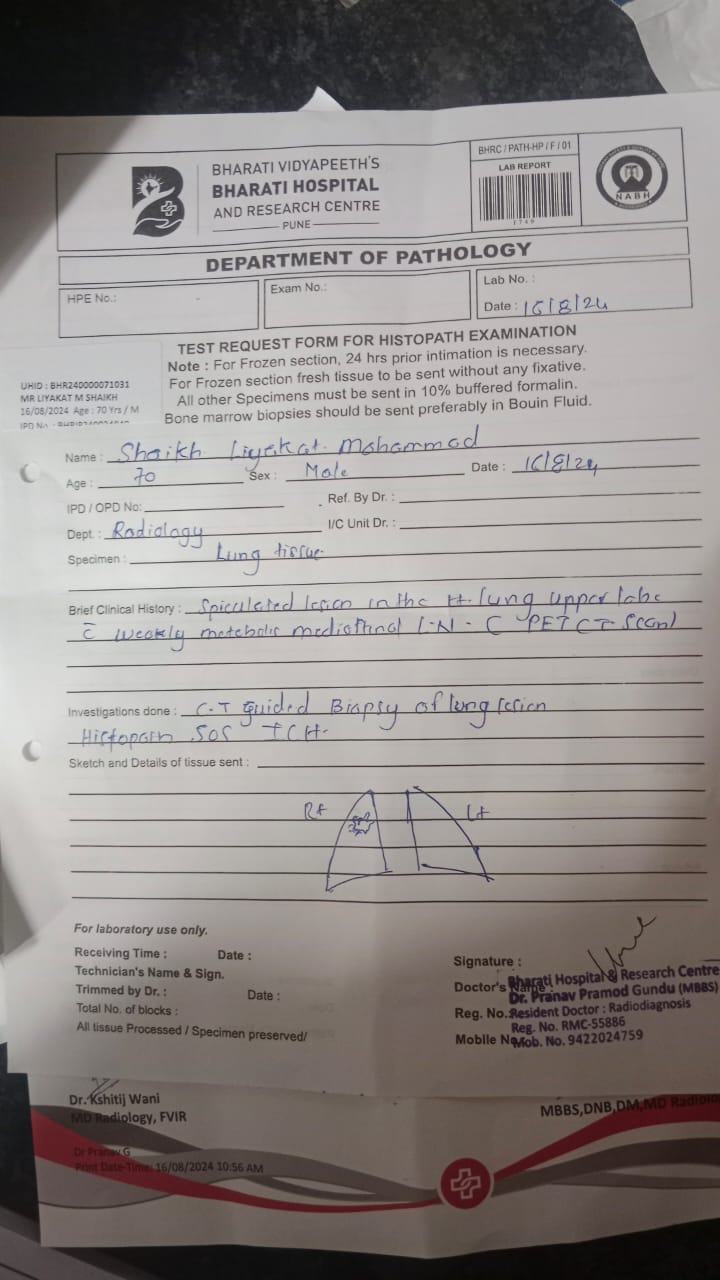 BHARATI VIDYAPEETH'S
BHARATI HOSPITAL
AND RESEARCH CENTRE
PUNE
BHRC / PATH-HP / F / 01
LAB REPORT
1749
NABH
DEPARTMENT OF PATHOLOGY
HPE No.:
Exam No.:
Lab No. :
Date : 16/8/24
TEST REQUEST FORM FOR HISTOPATH EXAMINATION
Note : For Frozen section, 24 hrs prior intimation is necessary.
For Frozen section fresh tissue to be sent without any fixative.
All other Specimens must be sent in 10% buffered formalin.
Bone marrow biopsies should be sent preferably in Bouin Fluid.
UHID : BHR240000071031
MR LIYAKAT M SHAIKH
16/08/2024 Age : 70 Yrs / M
IPD No
Name : Shaikh Liyakat Mohammad
Age : 70 Sex : Male Date : 16/8/24
IPD / OPD No: Ref. By Dr. :
Dept. : Radiology I/C Unit Dr. :
Specimen : Lung tissue
Brief Clinical History : Spiculated lesion in the rt lung upper lobe
c̄ weakly metabolic L.N. C PET CT Scan)
Investigations done : C.T guided Biopsy of lung lesion
Histopath SOS ICH.
Sketch and Details of tissue sent :
Rt Lt
For laboratory use only.
Receiving Time : Date :
Technician's Name & Sign.
Trimmed by Dr. : Date :
Total No. of blocks :
All tissue Processed / Specimen preserved/
Signature :
Doctor's Name :
Bharati Hospital & Research Centre
Dr. Pranav Pramod Gundu (MBBS)
Reg. No.: Resident Doctor : Radiodiagnosis
Reg. No. RMC-55886
Mobile No. Mob. No. 9422024759
Dr. Kshitij Wani
MD Radiology, FVIR
MBBS,DNB,DM,MD
Dr Pranav.G
Print Date-Time: 16/08/2024 10:56 AM